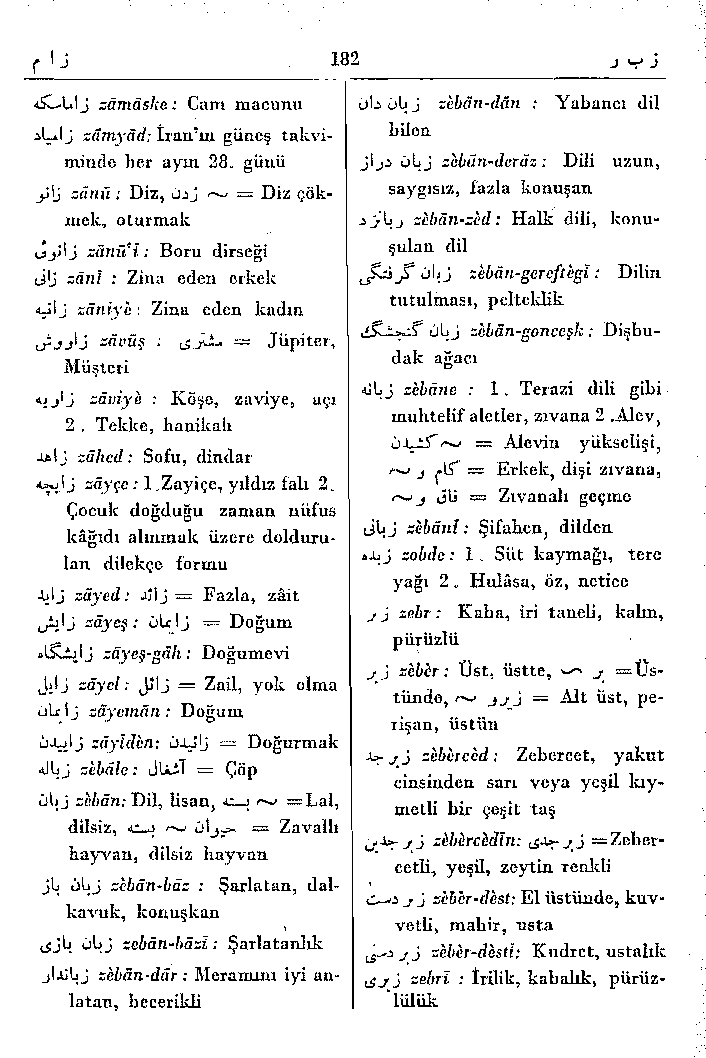 زام 182 زبر
زاماسكه zāmāske: Cam macunu
زامیاد zāmyād: İran'ın güneş takvi-
minde her ayın 28. günü
زانو zānū: Diz, زدن ~ = Diz çök-
mek, oturmak
زانوئی zānū'ī: Boru dirseği
زانی zānī : Zina eden erkek
زانیه zāniyè : Zina eden kadın
زاووش zāvūş : مشتری = Jüpiter,
Müşteri
زاویه zāviyè : Köşe, zaviye, açı
2 . Tekke, hanikah
زاهد zāhed: Sofu, dindar
زایچه zāyçe: 1.Zayiçe, yıldız falı 2.
Çocuk doğduğu zaman nüfus
kâğıdı alınmak üzere dolduru-
lan dilekçe formu
زاید zāyed: زائد = Fazla, zâit
زایش zāyeş: زایمان = Doğum
زایشگاه zāyeş-gāh: Doğumevi
زایل zāyel: زائل = Zail, yok olma
زایمان zāyemān: Doğum
زاییدن zāyīdèn: زائیدن = Doğurmak
زباله zèbāle: آشغال = Çöp
زبان zèbān: Dil, lisan, ~ بسته =Lal,
dilsiz, حیوان ~ بسته = Zavallı
hayvan, dilsiz hayvan
زبان باز zèbān-bāz : Şarlatan, dal-
kavuk, konuşkan
زبان بازی zebān-bāzī: Şarlatanlık
زباندار zèbān-dār: Meramını iyi an-
latan, becerikli
زبان دان zèbān-dān : Yabancı dil
bilen
زبان دراز zèbān-derāz: Dili uzun,
saygısız, fazla konuşan
زبانزد zèbān-zèd: Halk dili, konu-
şulan dil
زبان گرفتگی zèbān-gereftègī: Dilin
tutulması, pelteklik
زبان گنجشگ zèbān-gonceşk: Dişbu-
dak ağacı
زبانه zèbāne : 1. Terazi dili gibi
muhtelif aletler, zıvana 2 .Alev,
~ کشیدن = Alevin yükselişi,
~ و کام = Erkek, dişi zıvana,
~ و فاق = Zıvanalı geçme
زبانی zèbānī: Şifahen, dilden
زبده zobde: 1. Süt kaymağı, tere
yağı 2. Hulâsa, öz, netice
زبر zebr: Kaba, iri taneli, kalın,
pürüzlü
زبر zèbèr: Üst, üstte, بر ~ =Üs-
tünde, زیرو ~ = Alt üst, pe-
rişan, üstün
زبرجد zèbèrcèd: Zebercet, yakut
cinsinden sarı veya yeşil kıy-
metli bir çeşit taş
زبرجدین zèbèrcèdīn: زبرجدی =Zeber-
cetli, yeşil, zeytin renkli
زبردست zèbèr-dèst: El üstünde, kuv-
vetli, mahir, usta
زبردستی zèbèr-dèstī: Kudret, ustalık
زبری zebrī : İrilik, kabalık, pürüz-
lülük